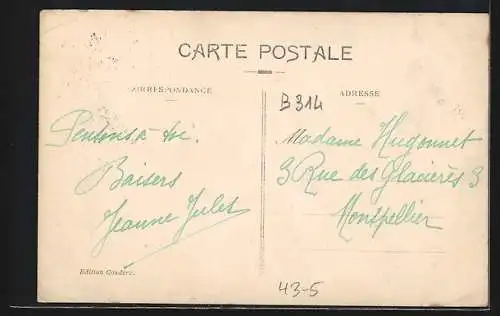 CARTE POSTALE
CORRESPONDANCE
ADRESSE
B 314
Pensons à toi.
Baisers
Jeanne Jules
Madame Hugonnet
3 Rue des Glacières 3
Montpellier
Edition Couderc.
43-5